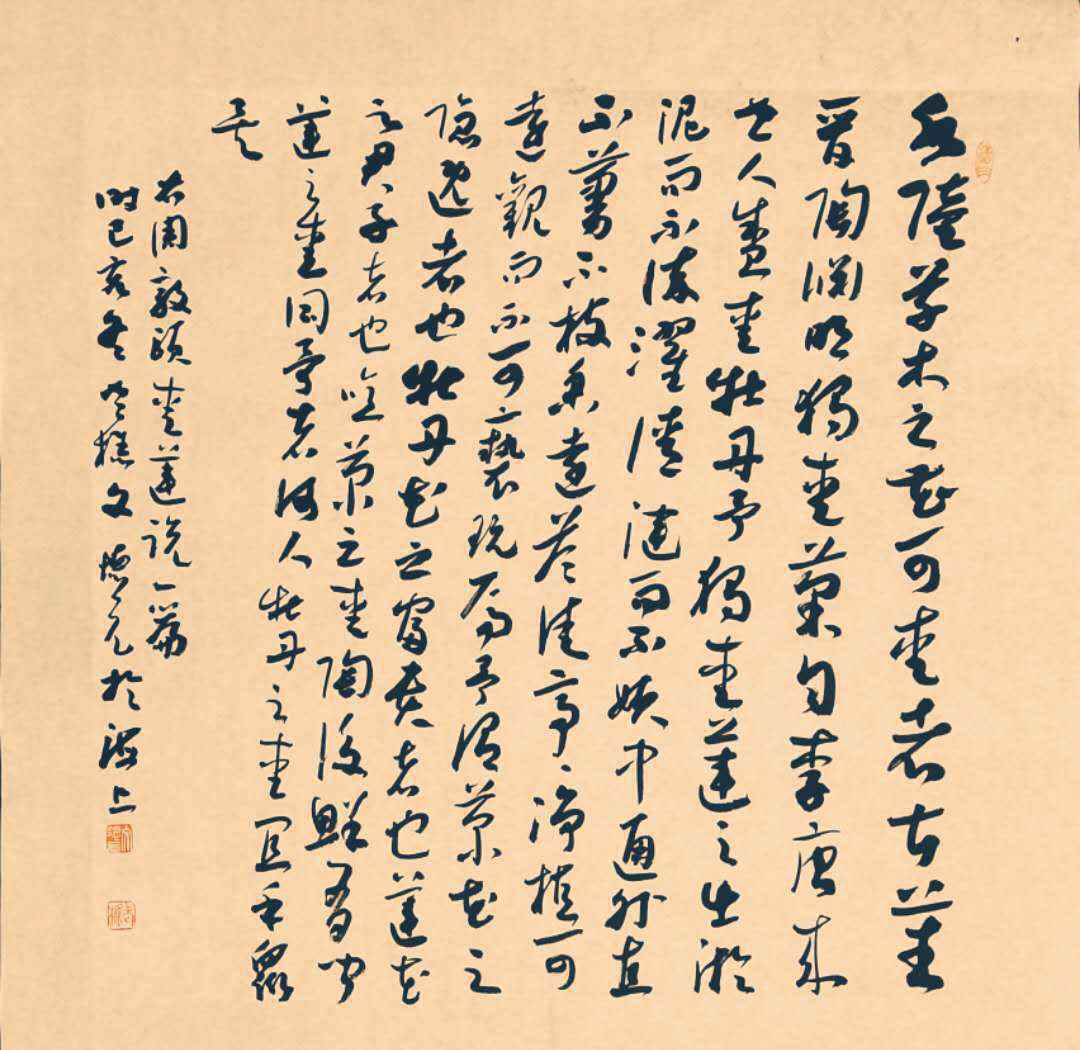 水陸草木之花可愛者甚蕃
晉陶淵明獨愛菊自李唐來
世人盛愛牡丹予獨愛蓮之出淤
泥而不染濯清漣而不妖中通外直
不蔓不枝香遠益清亭亭淨植可
遠觀而不可褻玩焉予謂菊花之
隱逸者也牡丹花之富貴者也蓮花
之君子者也噫菊之愛陶後鮮有聞
蓮之愛同予者何人牡丹之愛宜乎眾
矣
右周敦頤愛蓮說一篇
時己亥冬文德元於滬上